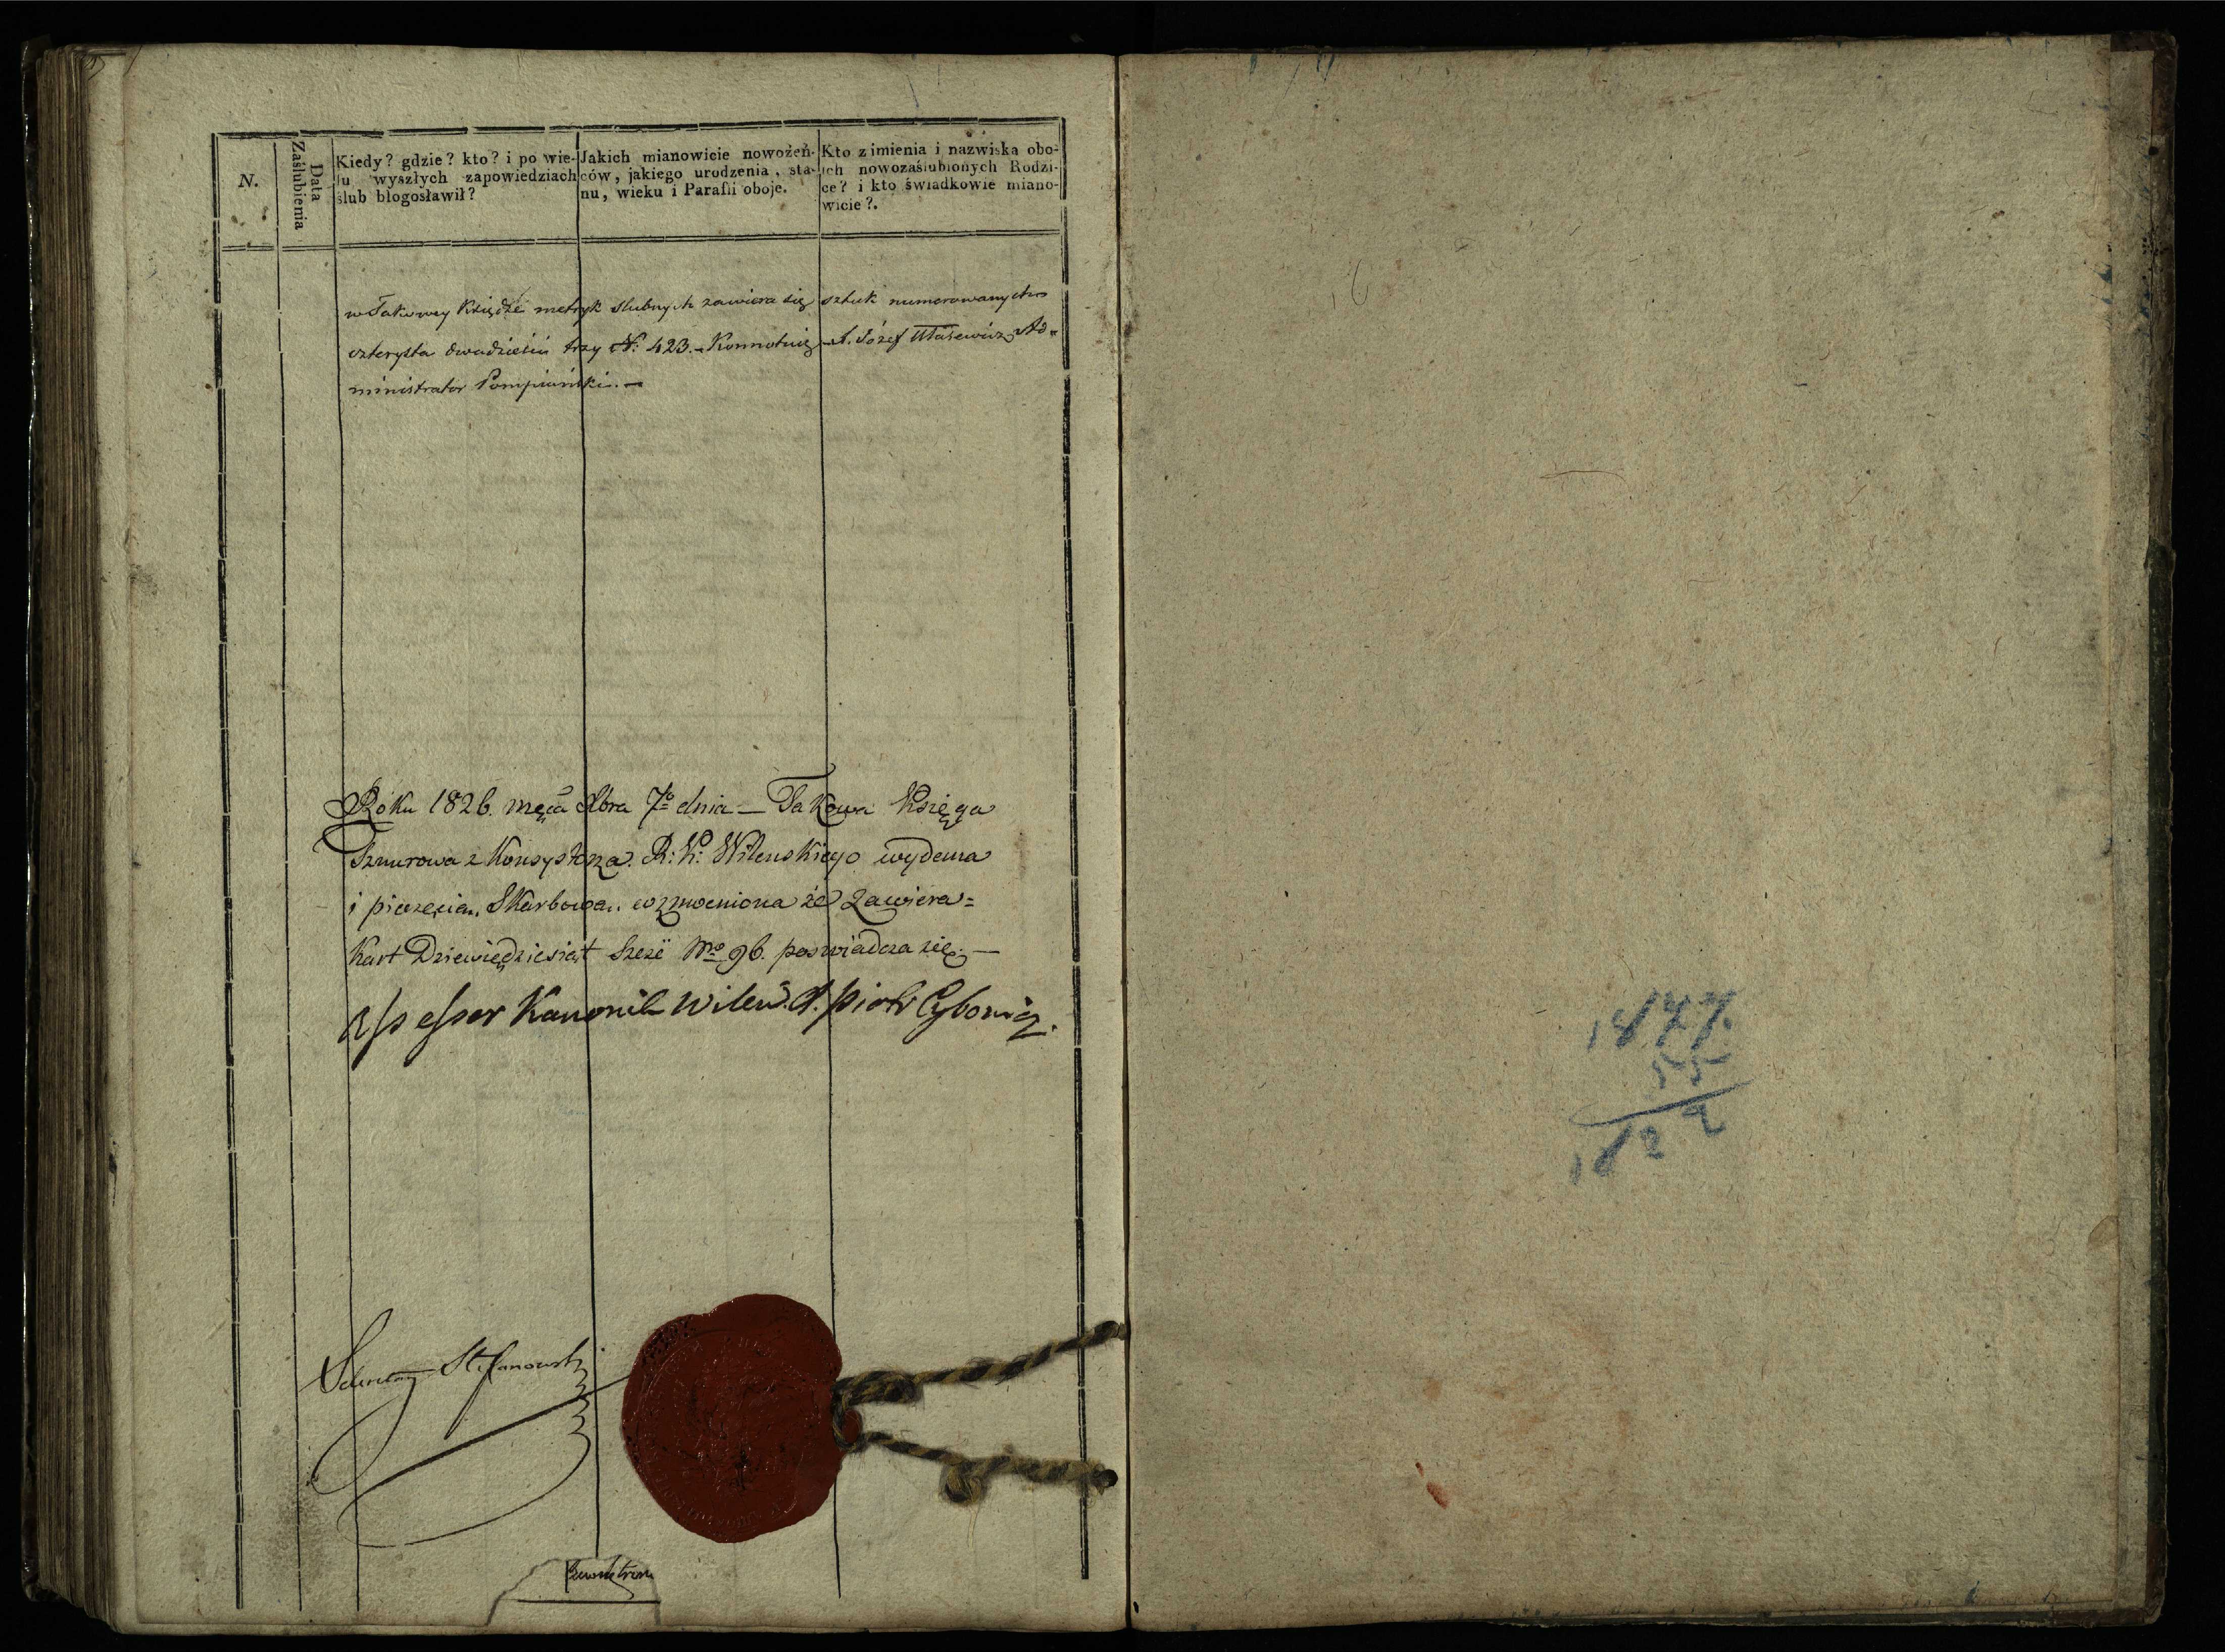 N.
Data
Zaślubienia
Kiedy? gdzie? kto? i po wie-
lu wyszłych zapowiedziach
ślub błogosławił?
Jakich mianowicie nowożeń-
ców, jakiego urodzenia, sta-
nu, wieku i Parafii oboje.
Kto z imienia i nazwiska obo-
ich nowozaślubionych Rodzi-
ce? i kto świadkowie miano-
wicie?.
w Takowey Księdze metryk slubnych zawiera się sztuk numerowanych
czterysta dwadzieścia trzy N: 423. - Konnotuię X. Józef Ad„
ministrator Pompiański. —
Roku 1826. męca Xbra 7º dnia — Takowa Księga
Sznurowa z Konsystorza R: K: Wilenskiego wydana
i pieczęcią Skarbową wzmocniona że zawiera =
Kart Dziewiędziesiąt Sześć Nro 96. poswiadcza się —
Assessor Kanonik Wileń. X. Piotr Cybowicz.
Sekretarz Stefanowski
1877.
55
1822